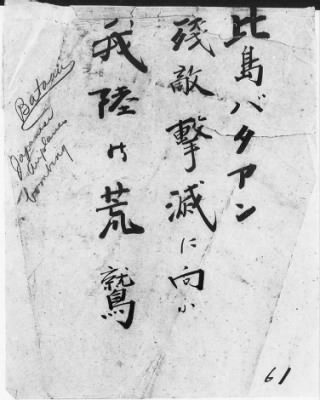 比島バタアン
残敵撃滅に向ふ
我陸の荒鷲
Bataan
Japanese
airplanes
bombing
61